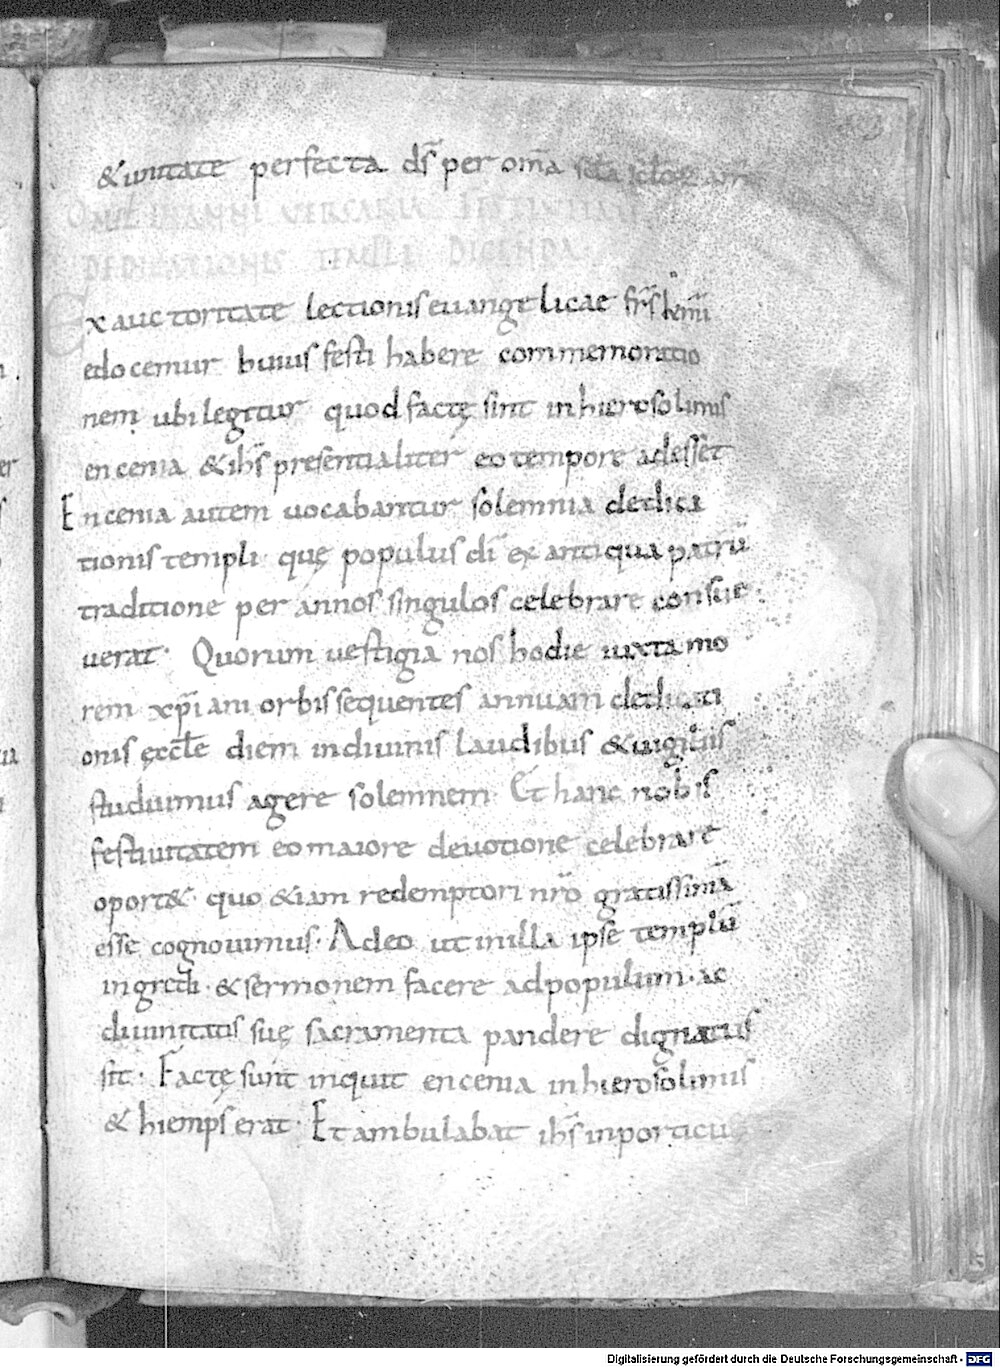 & unitate perfecta ds̄ per om̄a scła scłorz am
OMEL IN ANNIVERSARIA FESTIVITATE
DEDICATIONIS TEMPLI DICENDA·
Ex auctoritate lectionis euangelicae frs̄ kmī
edocemur huius festi habere commemoratio
nem ubi legitur quod factę sint in hierosolimis
encenia & ihs̄ presentialiter eo tempore adesset
Encenia autem uocabantur solemnia dedica
tionis templi quę populus dī ex antiqua patrū
traditione per annos singulos celebrare consue
uerat· Quorum uestigia nos hodie iuxta mo
rem xp̄iani orbis sequentes annuam dedicati
onis ęccłe diem in diuinis laudibus & uigiliis
studuimus agere solemnem· Et hanc nobis
festiuitatem eo maiore deuotione celebrare
oport&· quo &iam redemptori nr̄o gratissimā
esse cognouimus· Adeo ut in illa ipse templū
ingredi· & sermonem facere ad populum· ac
diuinitatis suę sacramenta pandere dignatus
sit· Factę sunt inquit encenia in hierosolimis
& hiemps erat· Et ambulabat ihs̄ in porticu
er
Digitalisierung gefördert durch die Deutsche Forschungsgemeinschaft - DFG